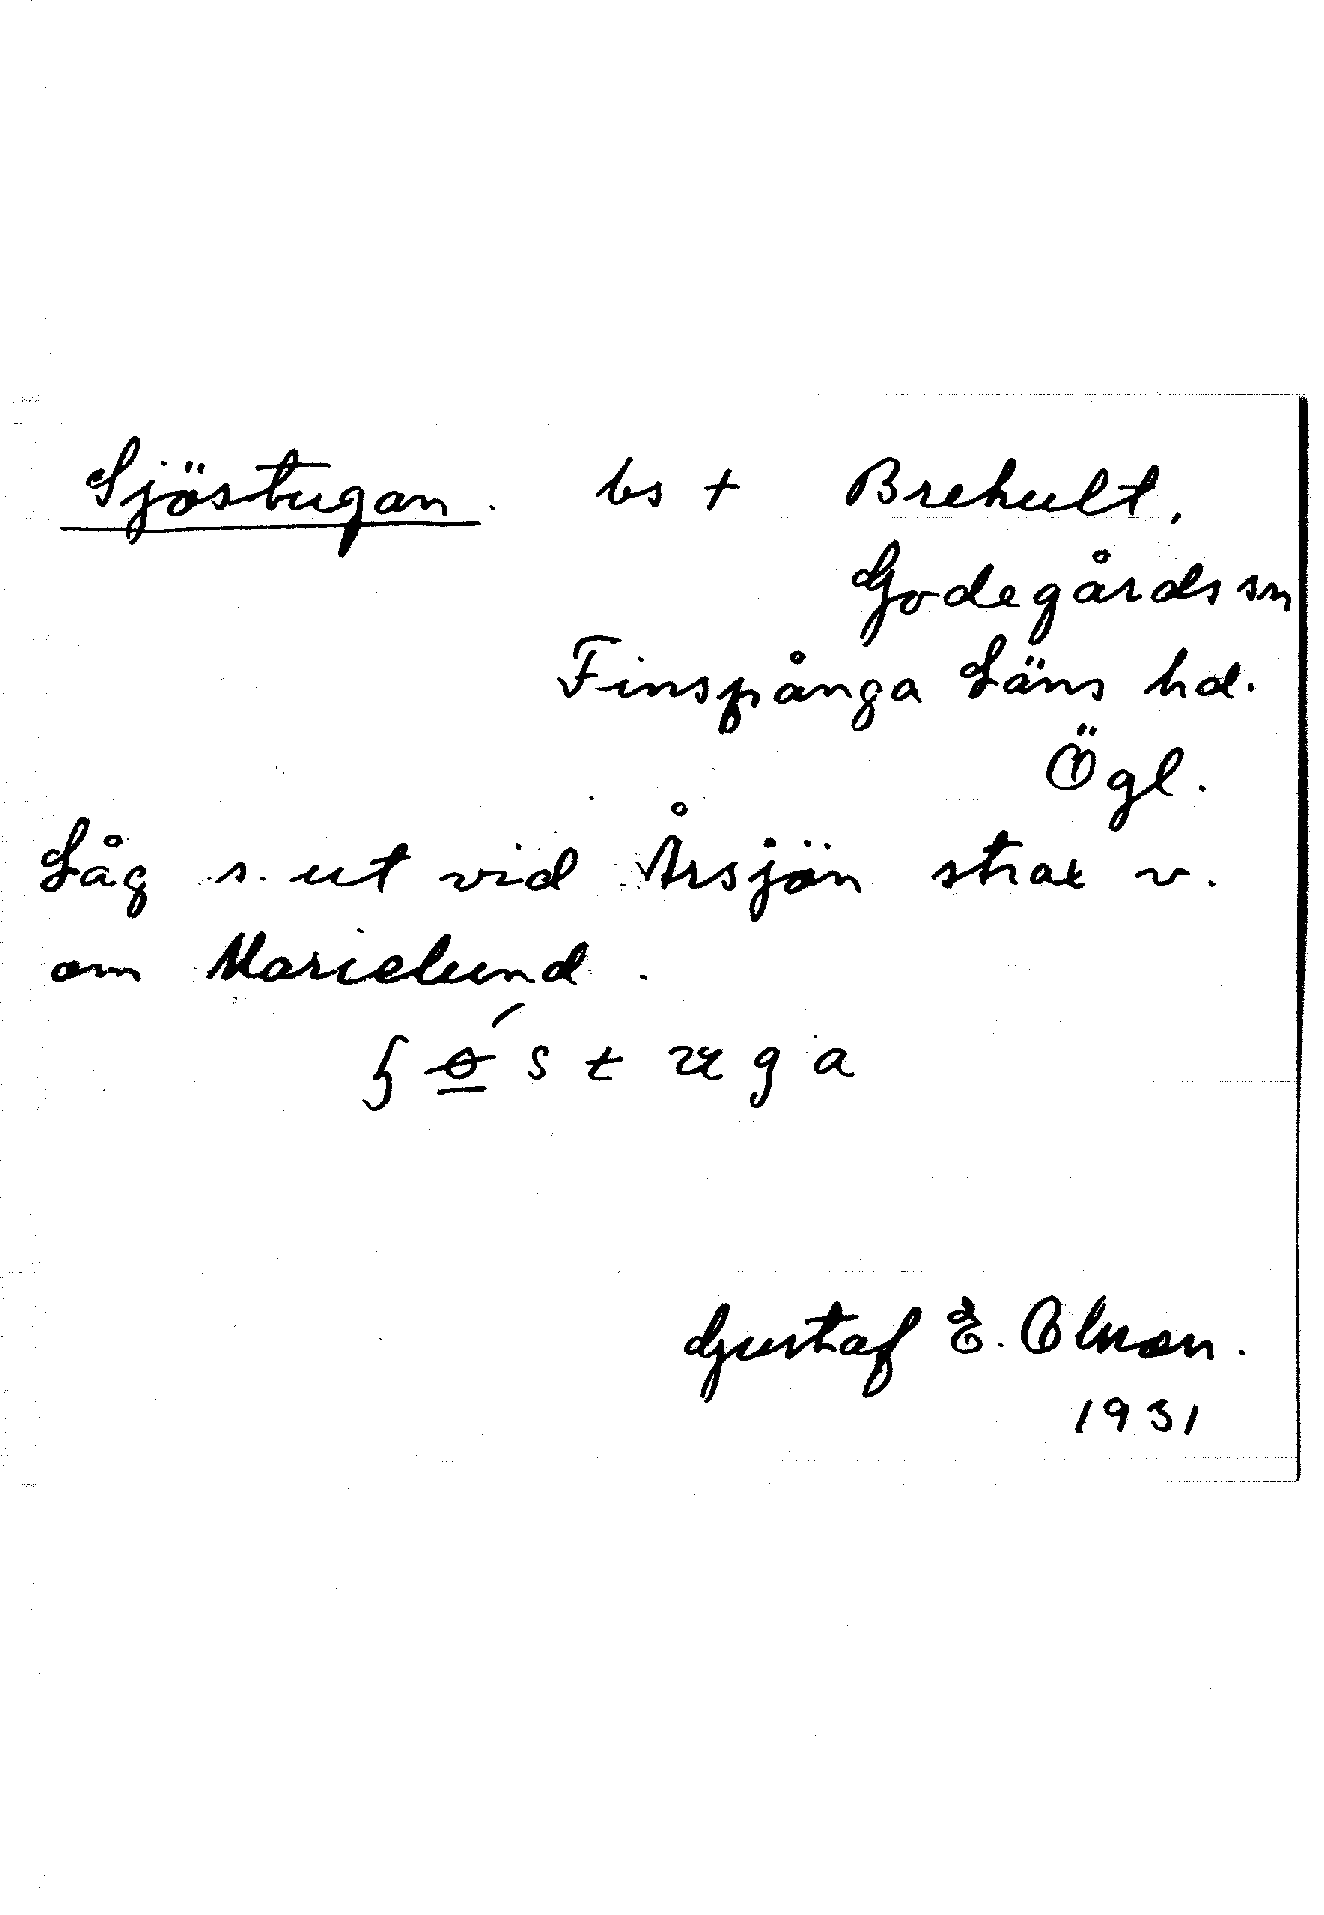 Sjöstugan. bs + Brehult,
Godegårds sn
Finspånga Läns hd.
Ögl.
Låg s. ut vid Årsjön strax v.
om Marielund.
Gustaf E. Olsson.
1931